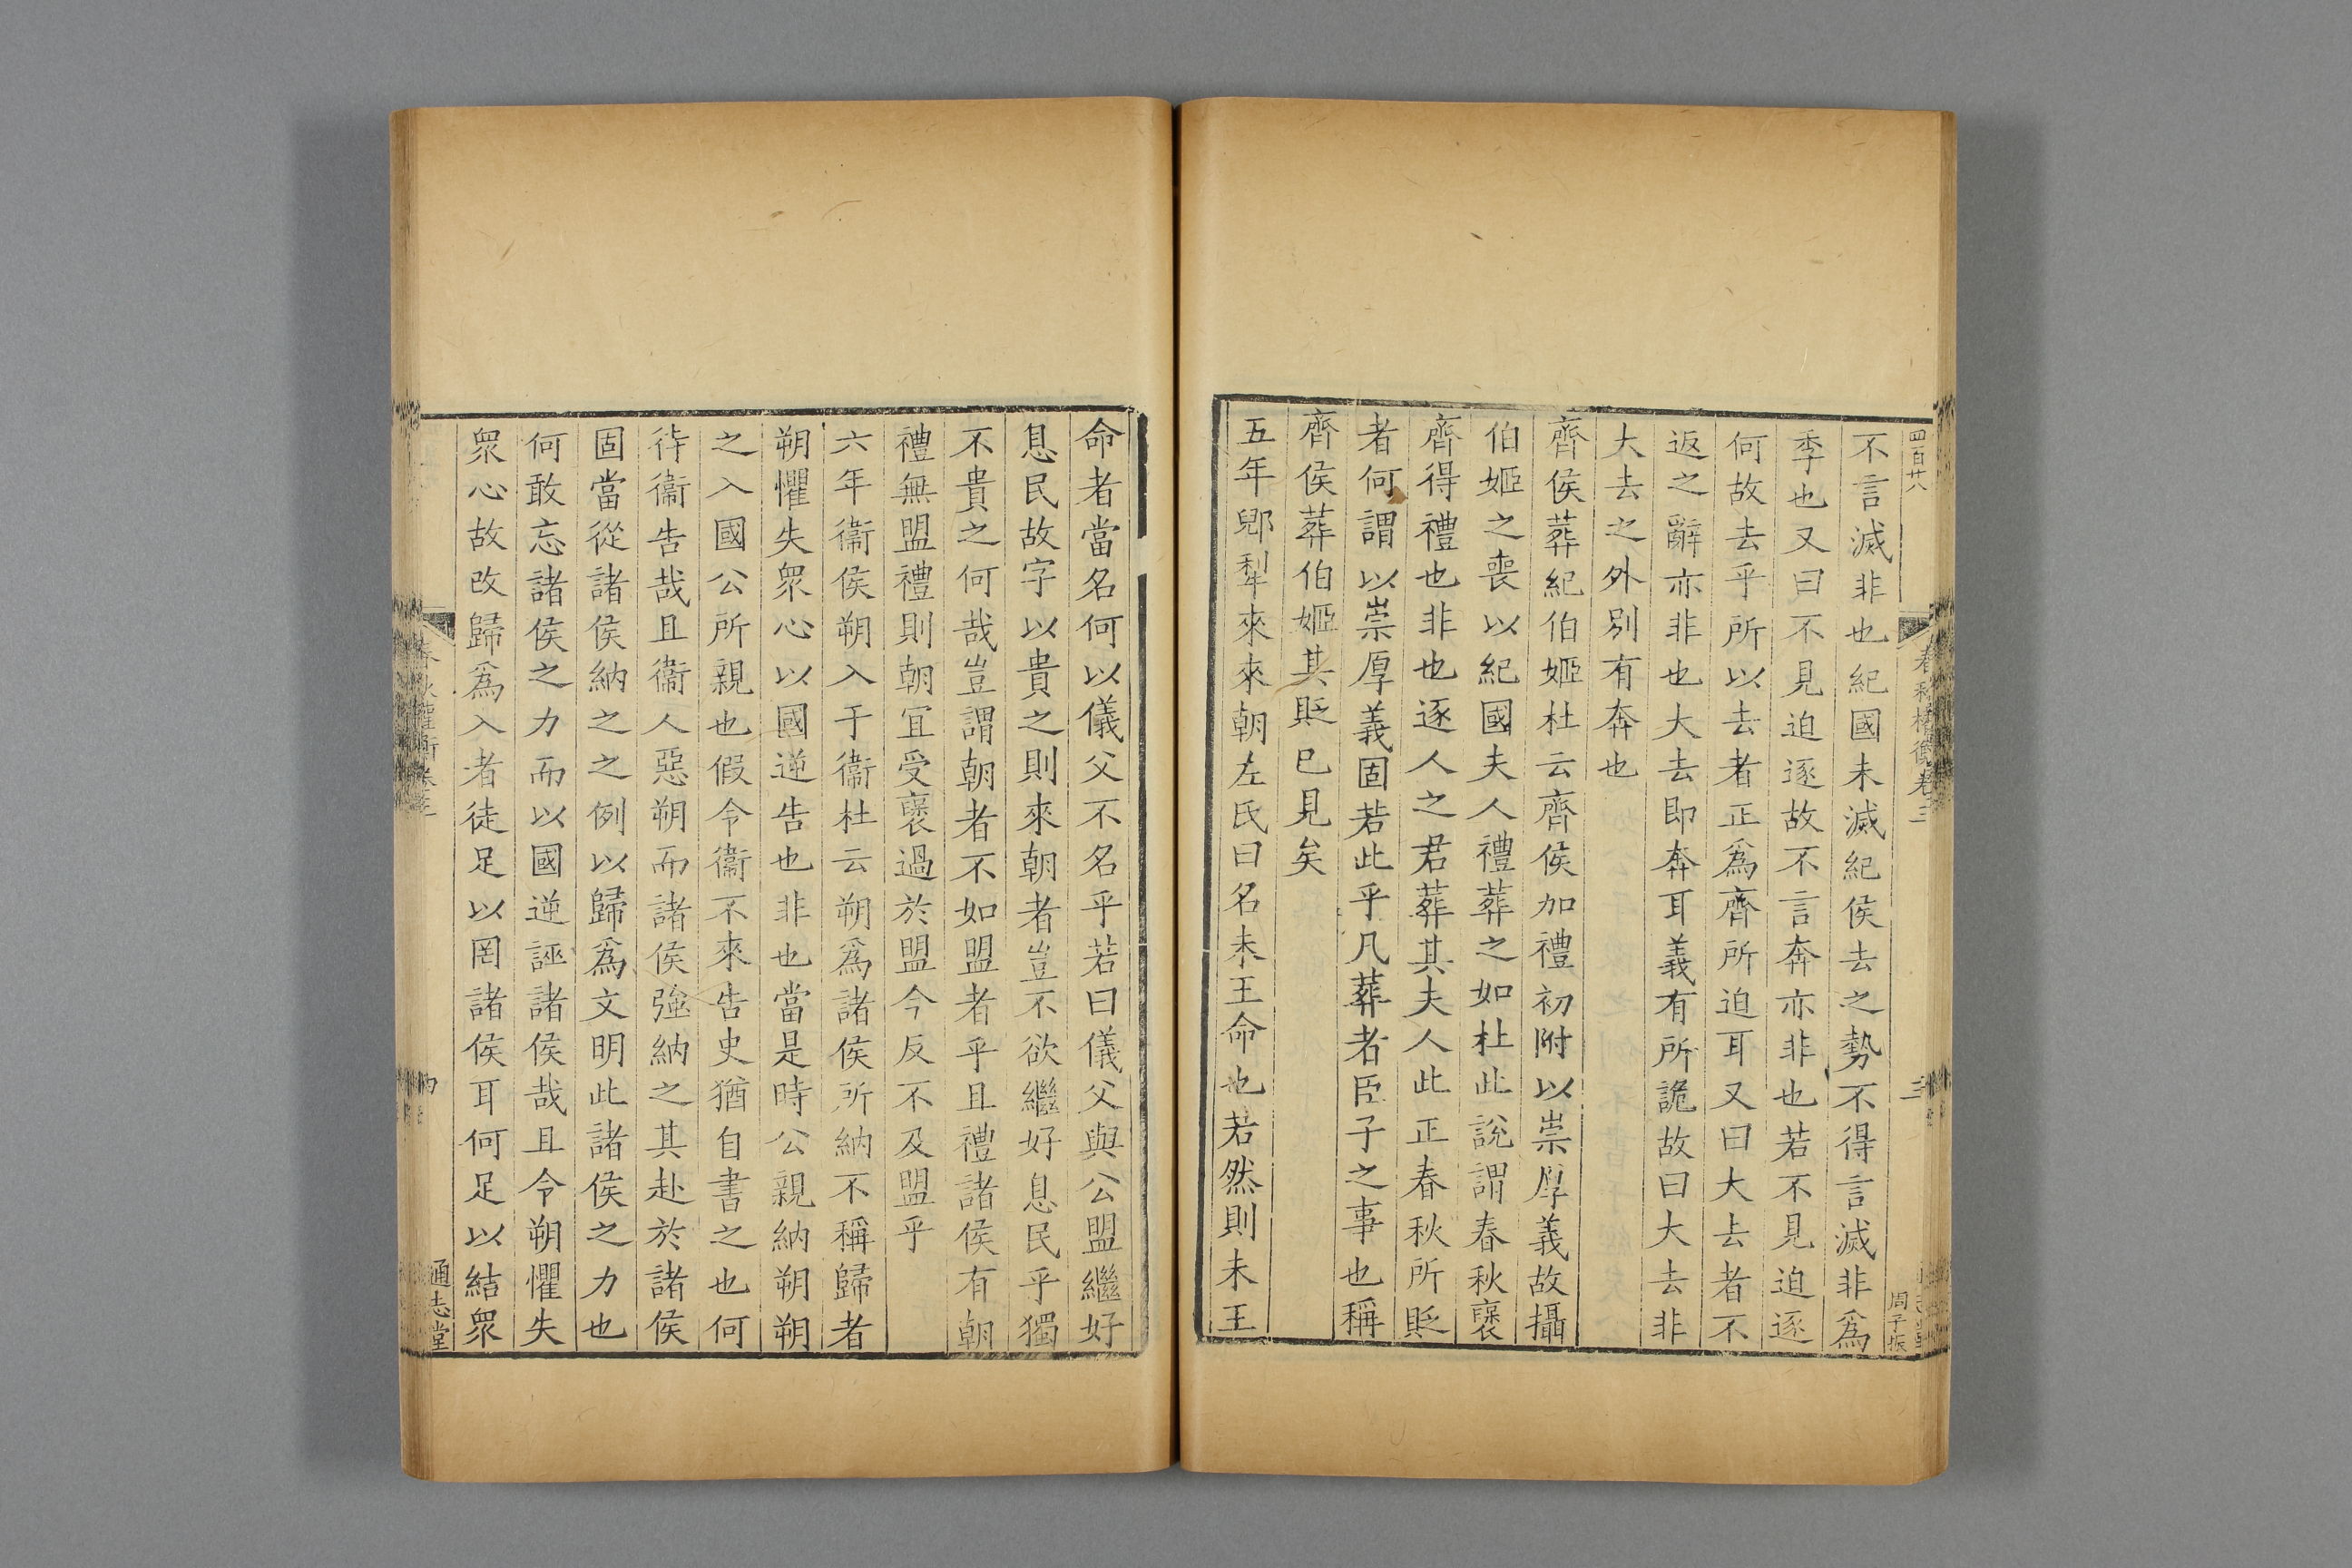 四百廿八
春秋權衡卷三
三
周子振
不言滅非也紀國未滅紀侯去之勢不得言滅非爲
季也又曰不見迫逐故不言奔亦非也若不見迫逐
何故去乎所以去者正爲齊所迫耳又曰大去者不
返之辭亦非也大去即奔耳義有所詭故曰大去非
大去之外別有奔也
齊侯葬紀伯姬杜云齊侯加禮初附以崇厚義故攝
伯姬之喪以紀國夫人禮葬之如杜此說謂春秋襃
齊得禮也非也逐人之君葬其夫人此正春秋所貶
者何謂以崇厚義固若此乎凡葬者臣子之事也稱
齊侯葬伯姬其貶已見矣
五年郳犂來來朝左氏曰名未王命也若然則未王
命者當名何以儀父不名乎若曰儀父與公盟繼好
息民故字以貴之則來朝者豈不欲繼好息民乎獨
不貴之何哉豈謂朝者不如盟者乎且禮諸侯有朝
禮無盟禮則朝宜受襃過於盟今反不及盟乎
六年衞侯朔入于衞杜云朔爲諸侯所納不稱歸者
朔懼失衆心以國逆告也非也當是時公親納朔朔
之入國公所親也假令衞不來告史猶自書之也何
待衞告哉且衞人惡朔而諸侯強納之其赴於諸侯
固當從諸侯納之之例以歸爲文明此諸侯之力也
何敢忘諸侯之力而以國逆誣諸侯哉且令朔懼失
衆心故改歸爲入者徒足以罔諸侯耳何足以結衆
春秋權衡卷三
通志堂